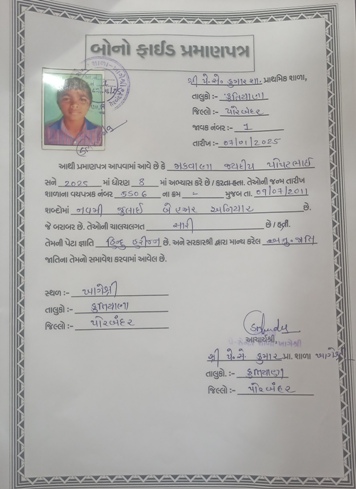 બોનો ફાઈડ પ્રમાણપત્ર
શ્રી પે.સે. કુમાર શા. પ્રાથમિક શાળા,
તાલુકો :- કુતિયાણા
જિલ્લો :- પોરબંદર
જાવક નંબર :- 1
તારીખ :- 07/01/2025
આથી પ્રમાણપત્ર આપવામાં આવે છે કે મકવાણા જયદીપ પોપટભાઈ
સને 2025 માં ધોરણ 8 માં અભ્યાસ કરે છે / કરતા હતા. તેઓની જન્મ તારીખ
શાળાના વયપત્રક નંબર 5506 ના ક્રમ - મુજબ તા. 09/07/2011
શબ્દોમાં નવમી જુલાઈ બે હજાર અગિયાર છે.
જે બરાબર છે. તેઓની ચાલચલગત સારી છે / હતી.
તેમની પેટા જ્ઞાતિ હિન્દુ હરીજન છે. અને સરકારશ્રી દ્વારા માન્ય કરેલ અનુ-જાતિ
જાતિના તેમનો સમાવેશ કરવામાં આવેલ છે.
સ્થળ :- ખાગેશ્રી
તાલુકો :- કુતિયાણા
જિલ્લો :- પોરબંદર
આચાર્યશ્રી,
શ્રી પે.સે કુમાર પ્રા. શાળા ખાગેશ્રી
તાલુકો. :- કુતિયાણા
જિલ્લો :- પોરબંદર